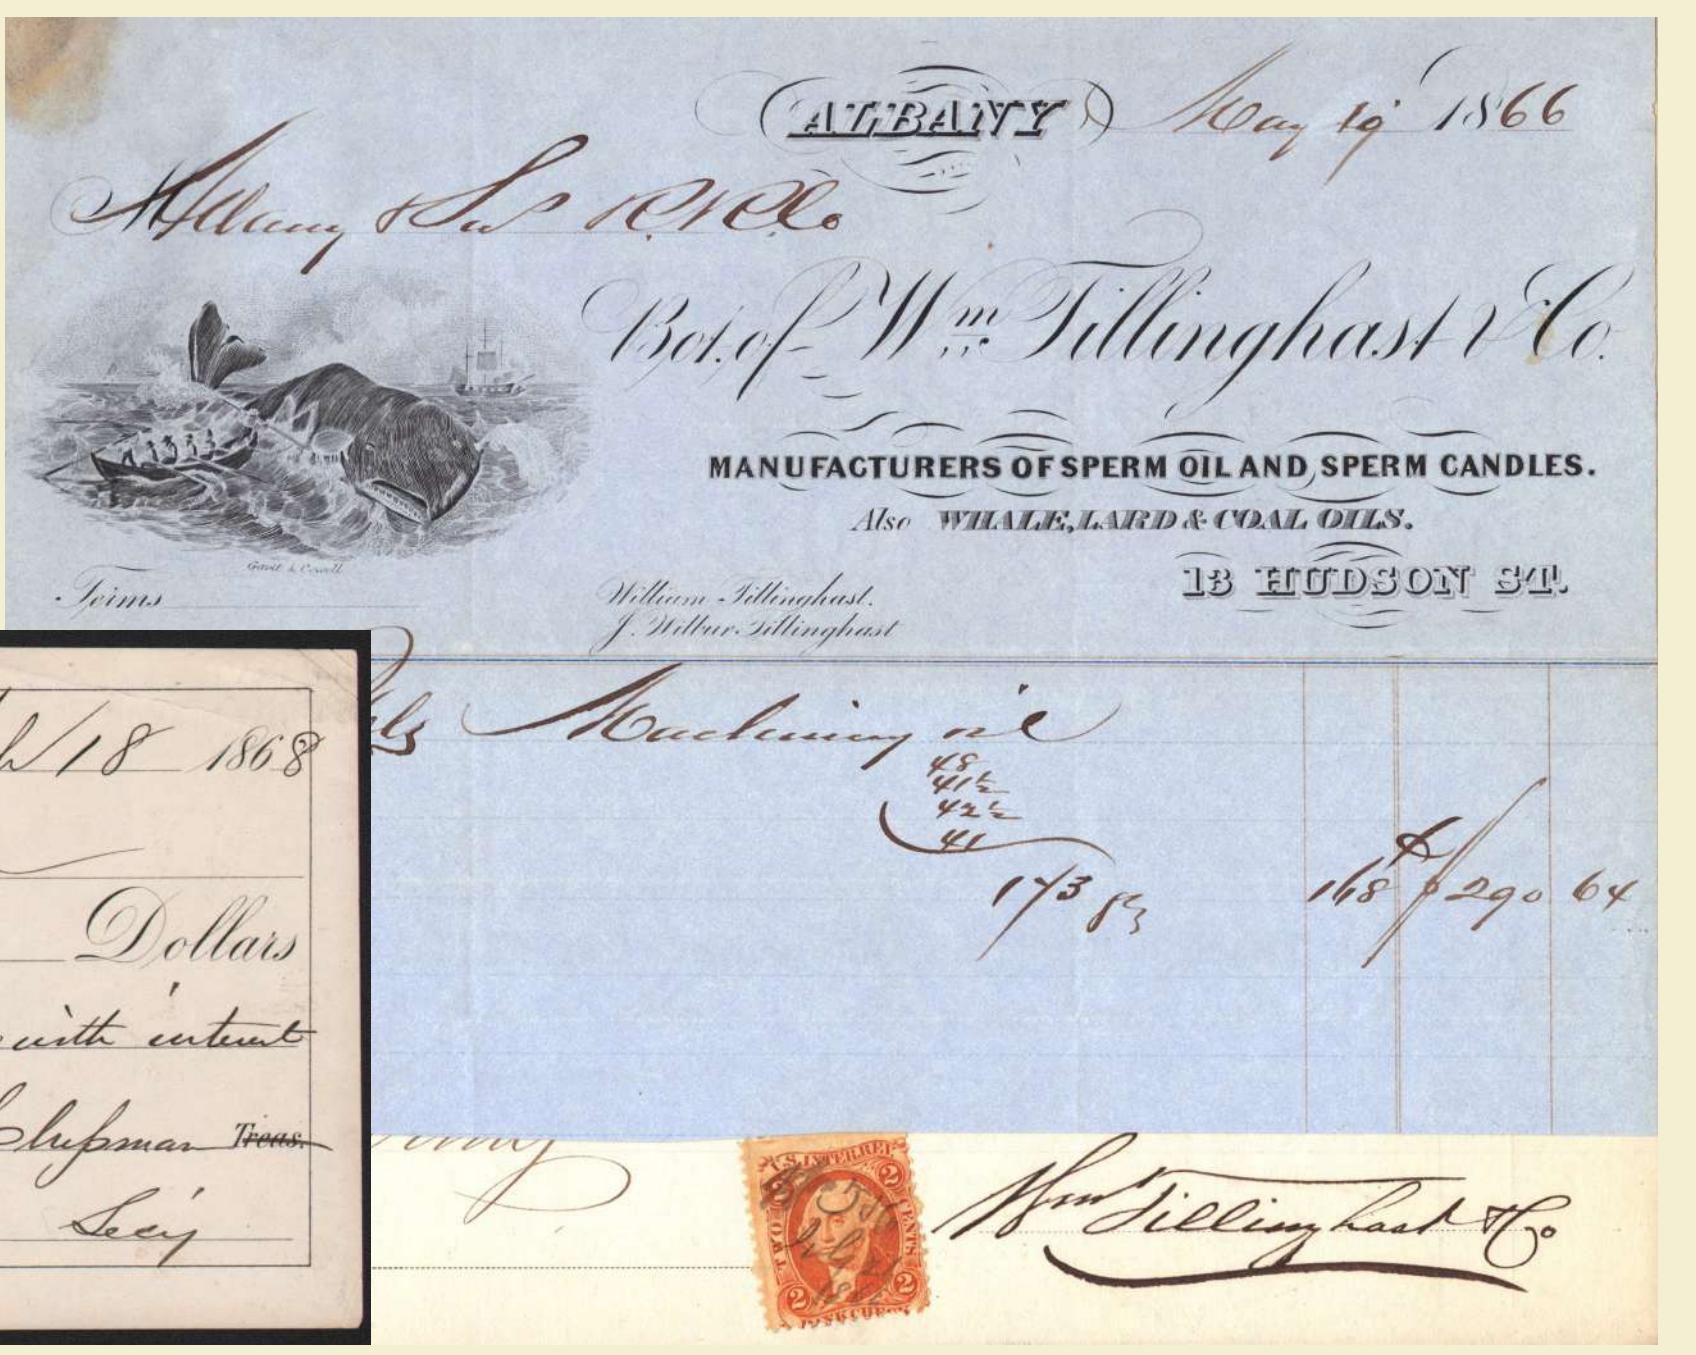 ALBANY May 19 1866
M Albany & Sus R.R.Co
Bot. of Wm Tillinghast & Co.
MANUFACTURERS OF SPERM OIL AND SPERM CANDLES.
Also WHALE, LARD & COAL OILS.
13 HUDSON ST.
Gavit & Cowell
Terms
William Tillinghast.
J. Wilbur Tillinghast
Machinery oil
48
41½
42½
41
173 gls
168 290 64
18 1868
Dollars
with interest
Shipman Treas.
Secy
U.S. INTER. REV.
TWO CENTS
2 2 2 2
Wm Tillinghast & Co